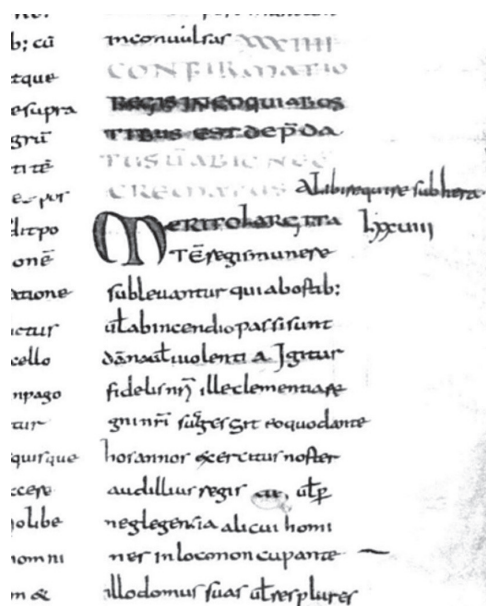 b; cū
tque
esupra
grū
ti tē
e per
ditpo
onē
atione
ictur
cello
npago
tur
quisque
ccese
nolibe
nomni
m &
inconvulsas XXXIIII
CONFIRMATIO
REGIS IN EO QUI AB OS
TIBUS EST DEP̄DA
TUS UL̄ AB IGNE
CREMATUS
Alibi require sub hera
lxxviiii
MERITO LARGITA
TĒ regis munere
sublevantur qui ab ostib;
ul̄ ab incendio passi sunt
dāna ul̄ violentia Igitur
fidelis nr̄i ille clementiae re
gni nr̄i suggessit eo quod ante
hos annos exercitus noster
aut illius regis ul̄ p
neglegencia alicui homi
nes in loco noncupante
illo domus suas ul̄ res plures